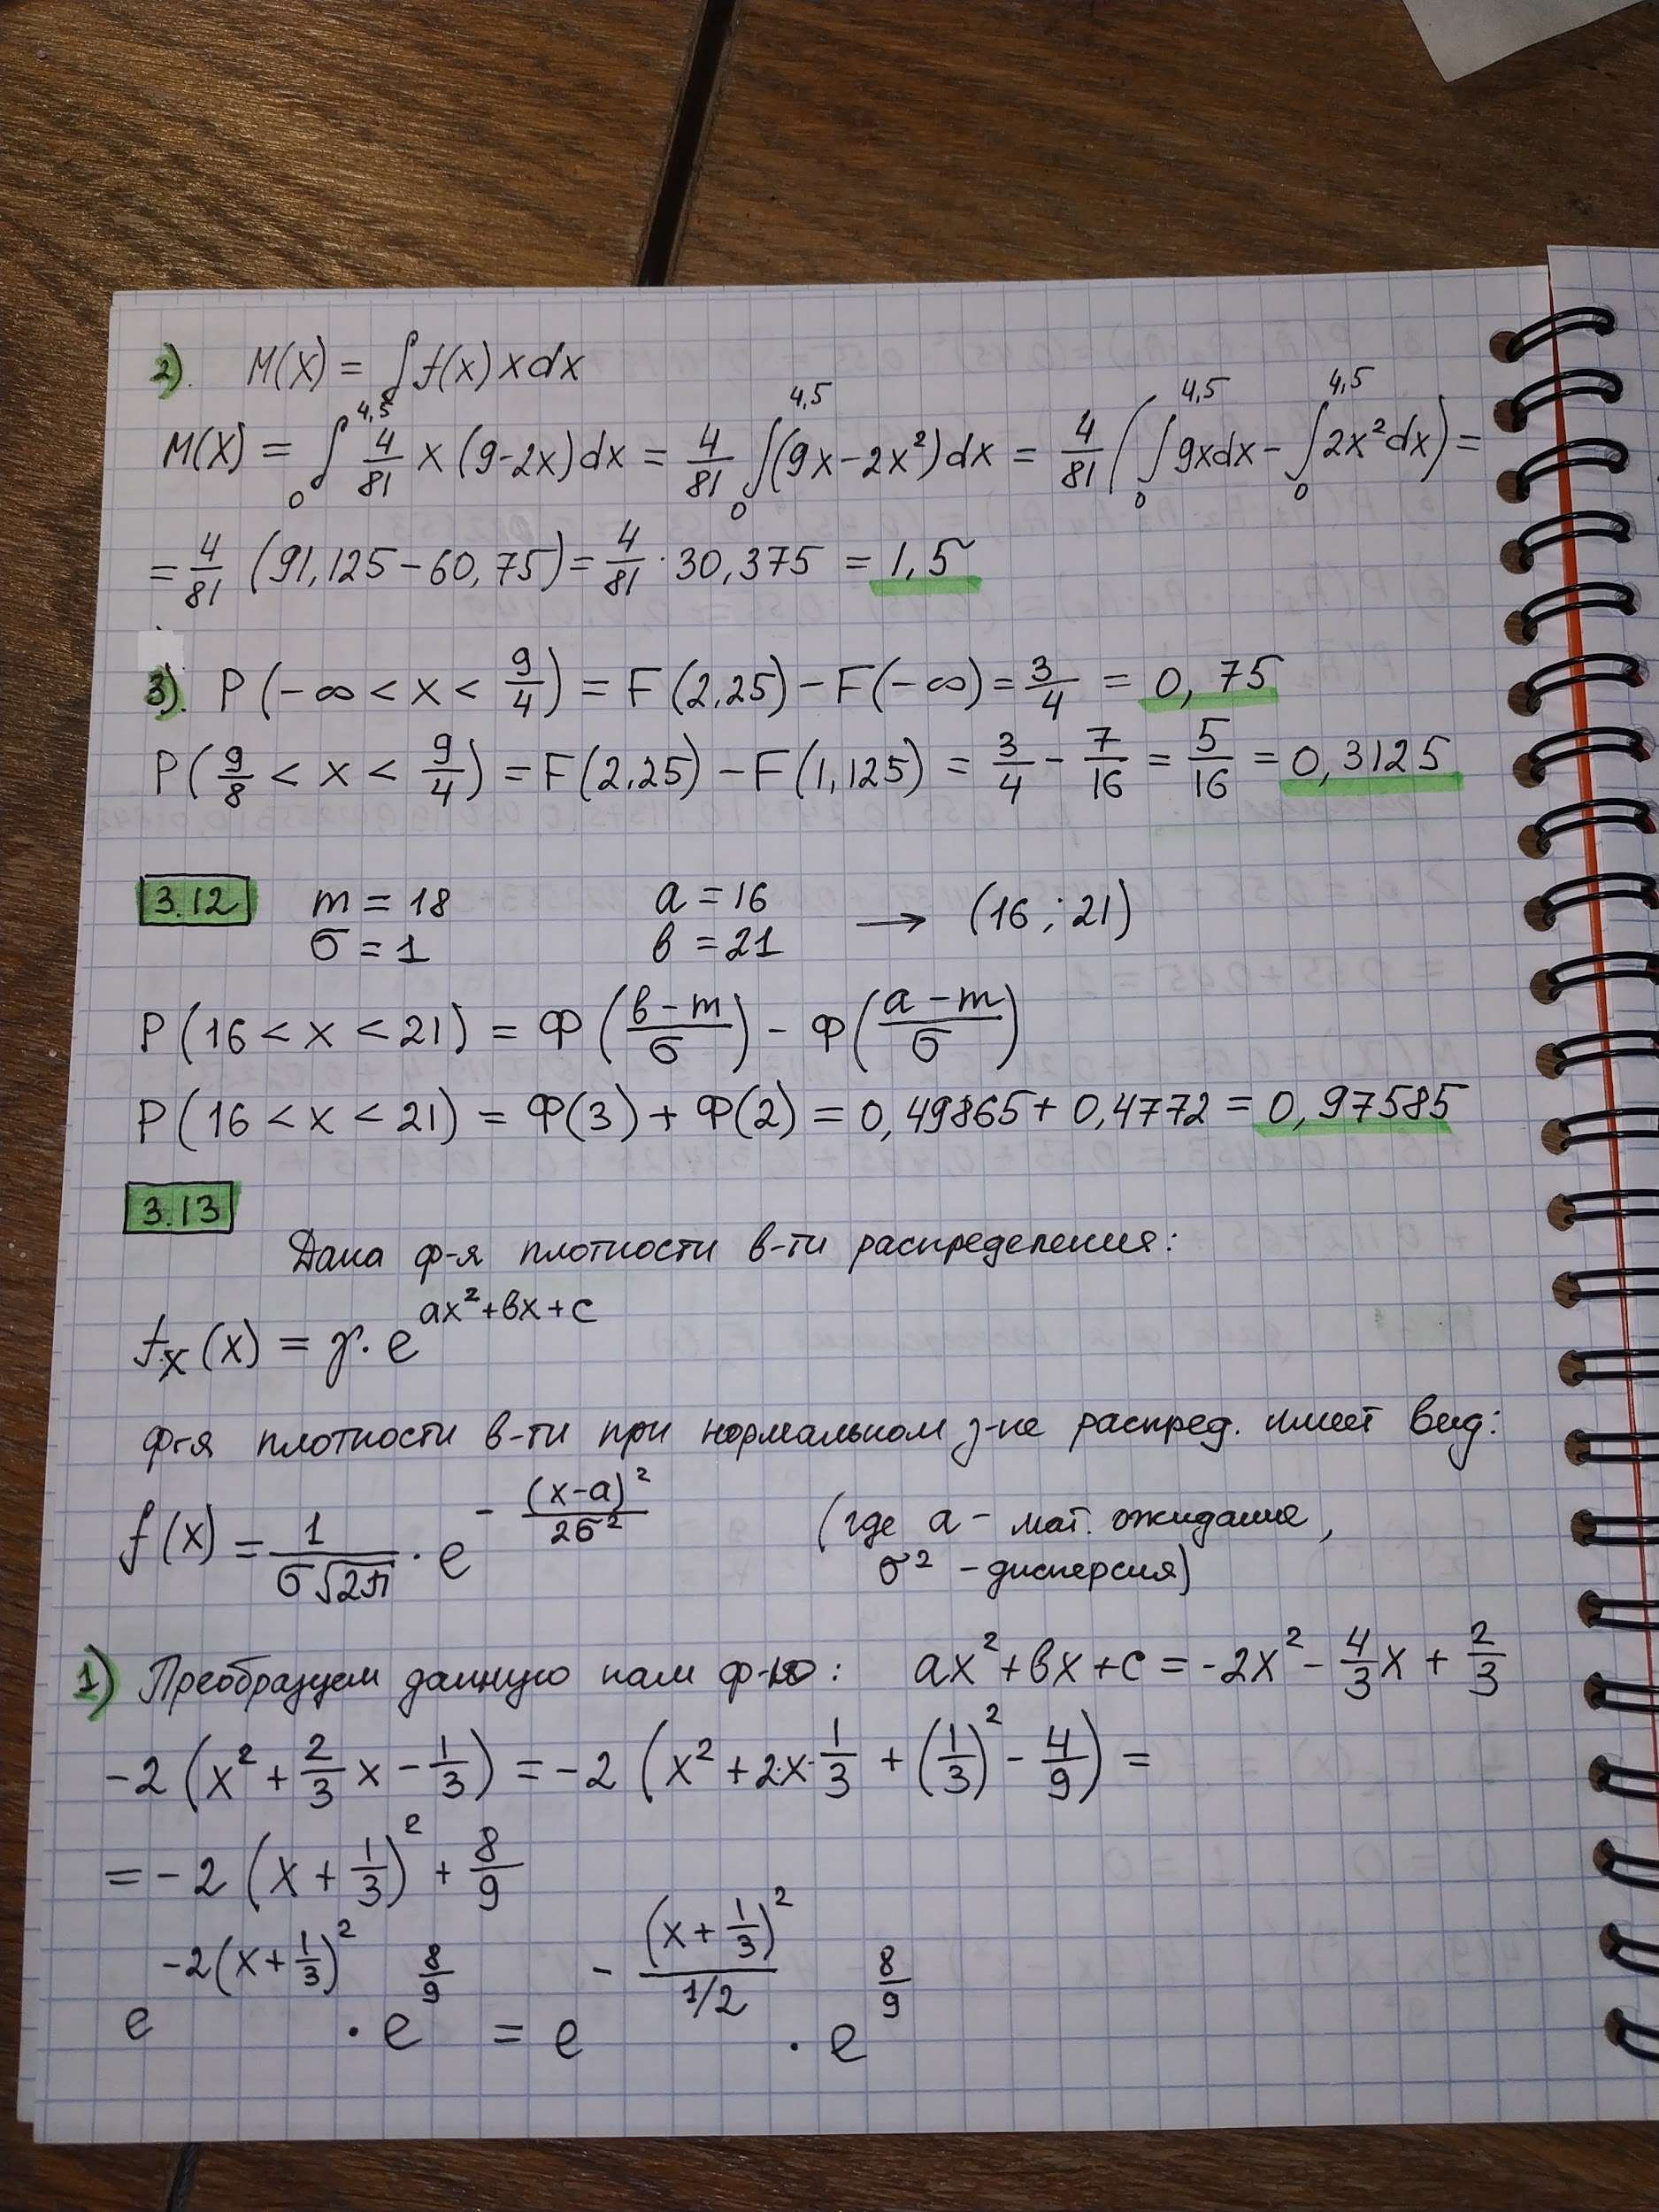 2). M(X) = ∫ f(x) x dx
M(X) = ∫₀^4,5 4/81 x (9-2x) dx = 4/81 ∫₀^4,5 (9x-2x²) dx = 4/81 (∫₀^4,5 9x dx - ∫₀^4,5 2x² dx) =
= 4/81 (91,125 - 60,75) = 4/81 · 30,375 = 1,5
3). P(-∞ < x < 9/4) = F(2,25) - F(-∞) = 3/4 = 0,75
P(9/8 < x < 9/4) = F(2,25) - F(1,125) = 3/4 - 7/16 = 5/16 = 0,3125
3.12 m = 18 a = 16 → (16 ; 21)
σ = 1 в = 21
P(16 < x < 21) = Φ((в-m)/σ) - Φ((a-m)/σ)
P(16 < x < 21) = Φ(3) + Φ(2) = 0,49865 + 0,4772 = 0,97585
3.13
Дана ф-я плотности в-ти распределения:
f_X(x) = γ · e^(ax²+вx+c)
ф-я плотности в-ти при нормальном з-не распред. имеет вид:
f(x) = 1/(σ√2π) · e^(-(x-a)²/2σ²) (где a - мат. ожидание,
σ² - дисперсия)
1) Преобразуем данную нам ф-ю: ax²+вx+c = -2x² - 4/3 x + 2/3
-2(x² + 2/3 x - 1/3) = -2(x² + 2x·1/3 + (1/3)² - 4/9) =
= -2(x + 1/3)² + 8/9
e^(-2(x+1/3)²) · e^(8/9) = e^(-(x+1/3)²/(1/2)) · e^(8/9)